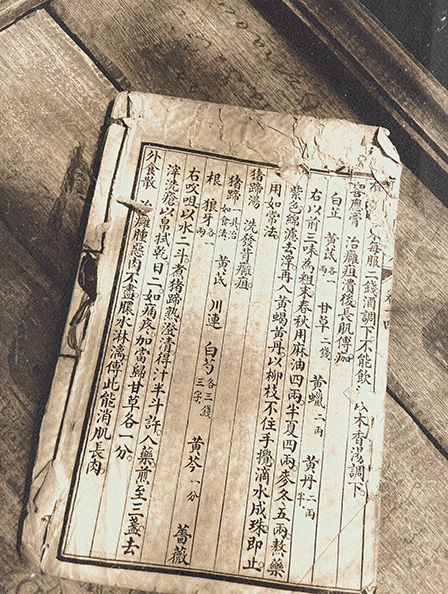 每服二錢酒調下不能飲以木香湯調下
應膏 治癰疽潰後長肌傅加
白芷 黃芪各一兩 甘草二錢 黃蠟二兩 黃丹二兩半
右以前三味為粗末春秋用麻油四兩半夏四兩麥冬五兩熬藥
紫色綿濾去滓再入黃蠟黃丹以柳枝不住手攪滴水成珠即止
用如常法
猪蹄湯 洗發背癰疽
猪蹄一具治如食法 黃芪 川連 白芍各三錢三字 黃芩一分 薔薇
根 狼牙各一兩
右㕮咀以水二斗煮猪蹄熟澄清得汁半斗許入藥煎至三盞去
滓洗瘡以帛拭乾日二如痛疼加當歸甘草各一分
外食散 治癰腫惡肉不盡膿水淋漓傅此能消肌長肉